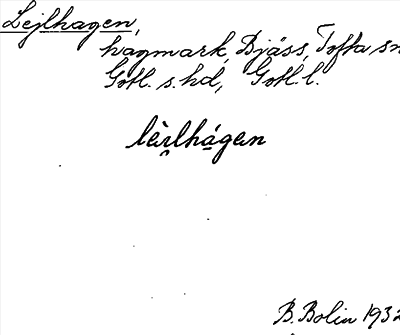 Lejlhagen,
hagmark, Djäss, Tofta sn
Gotl. s. hd, Gotl. l.
lèi̯lhágen
B. Bolin 1932